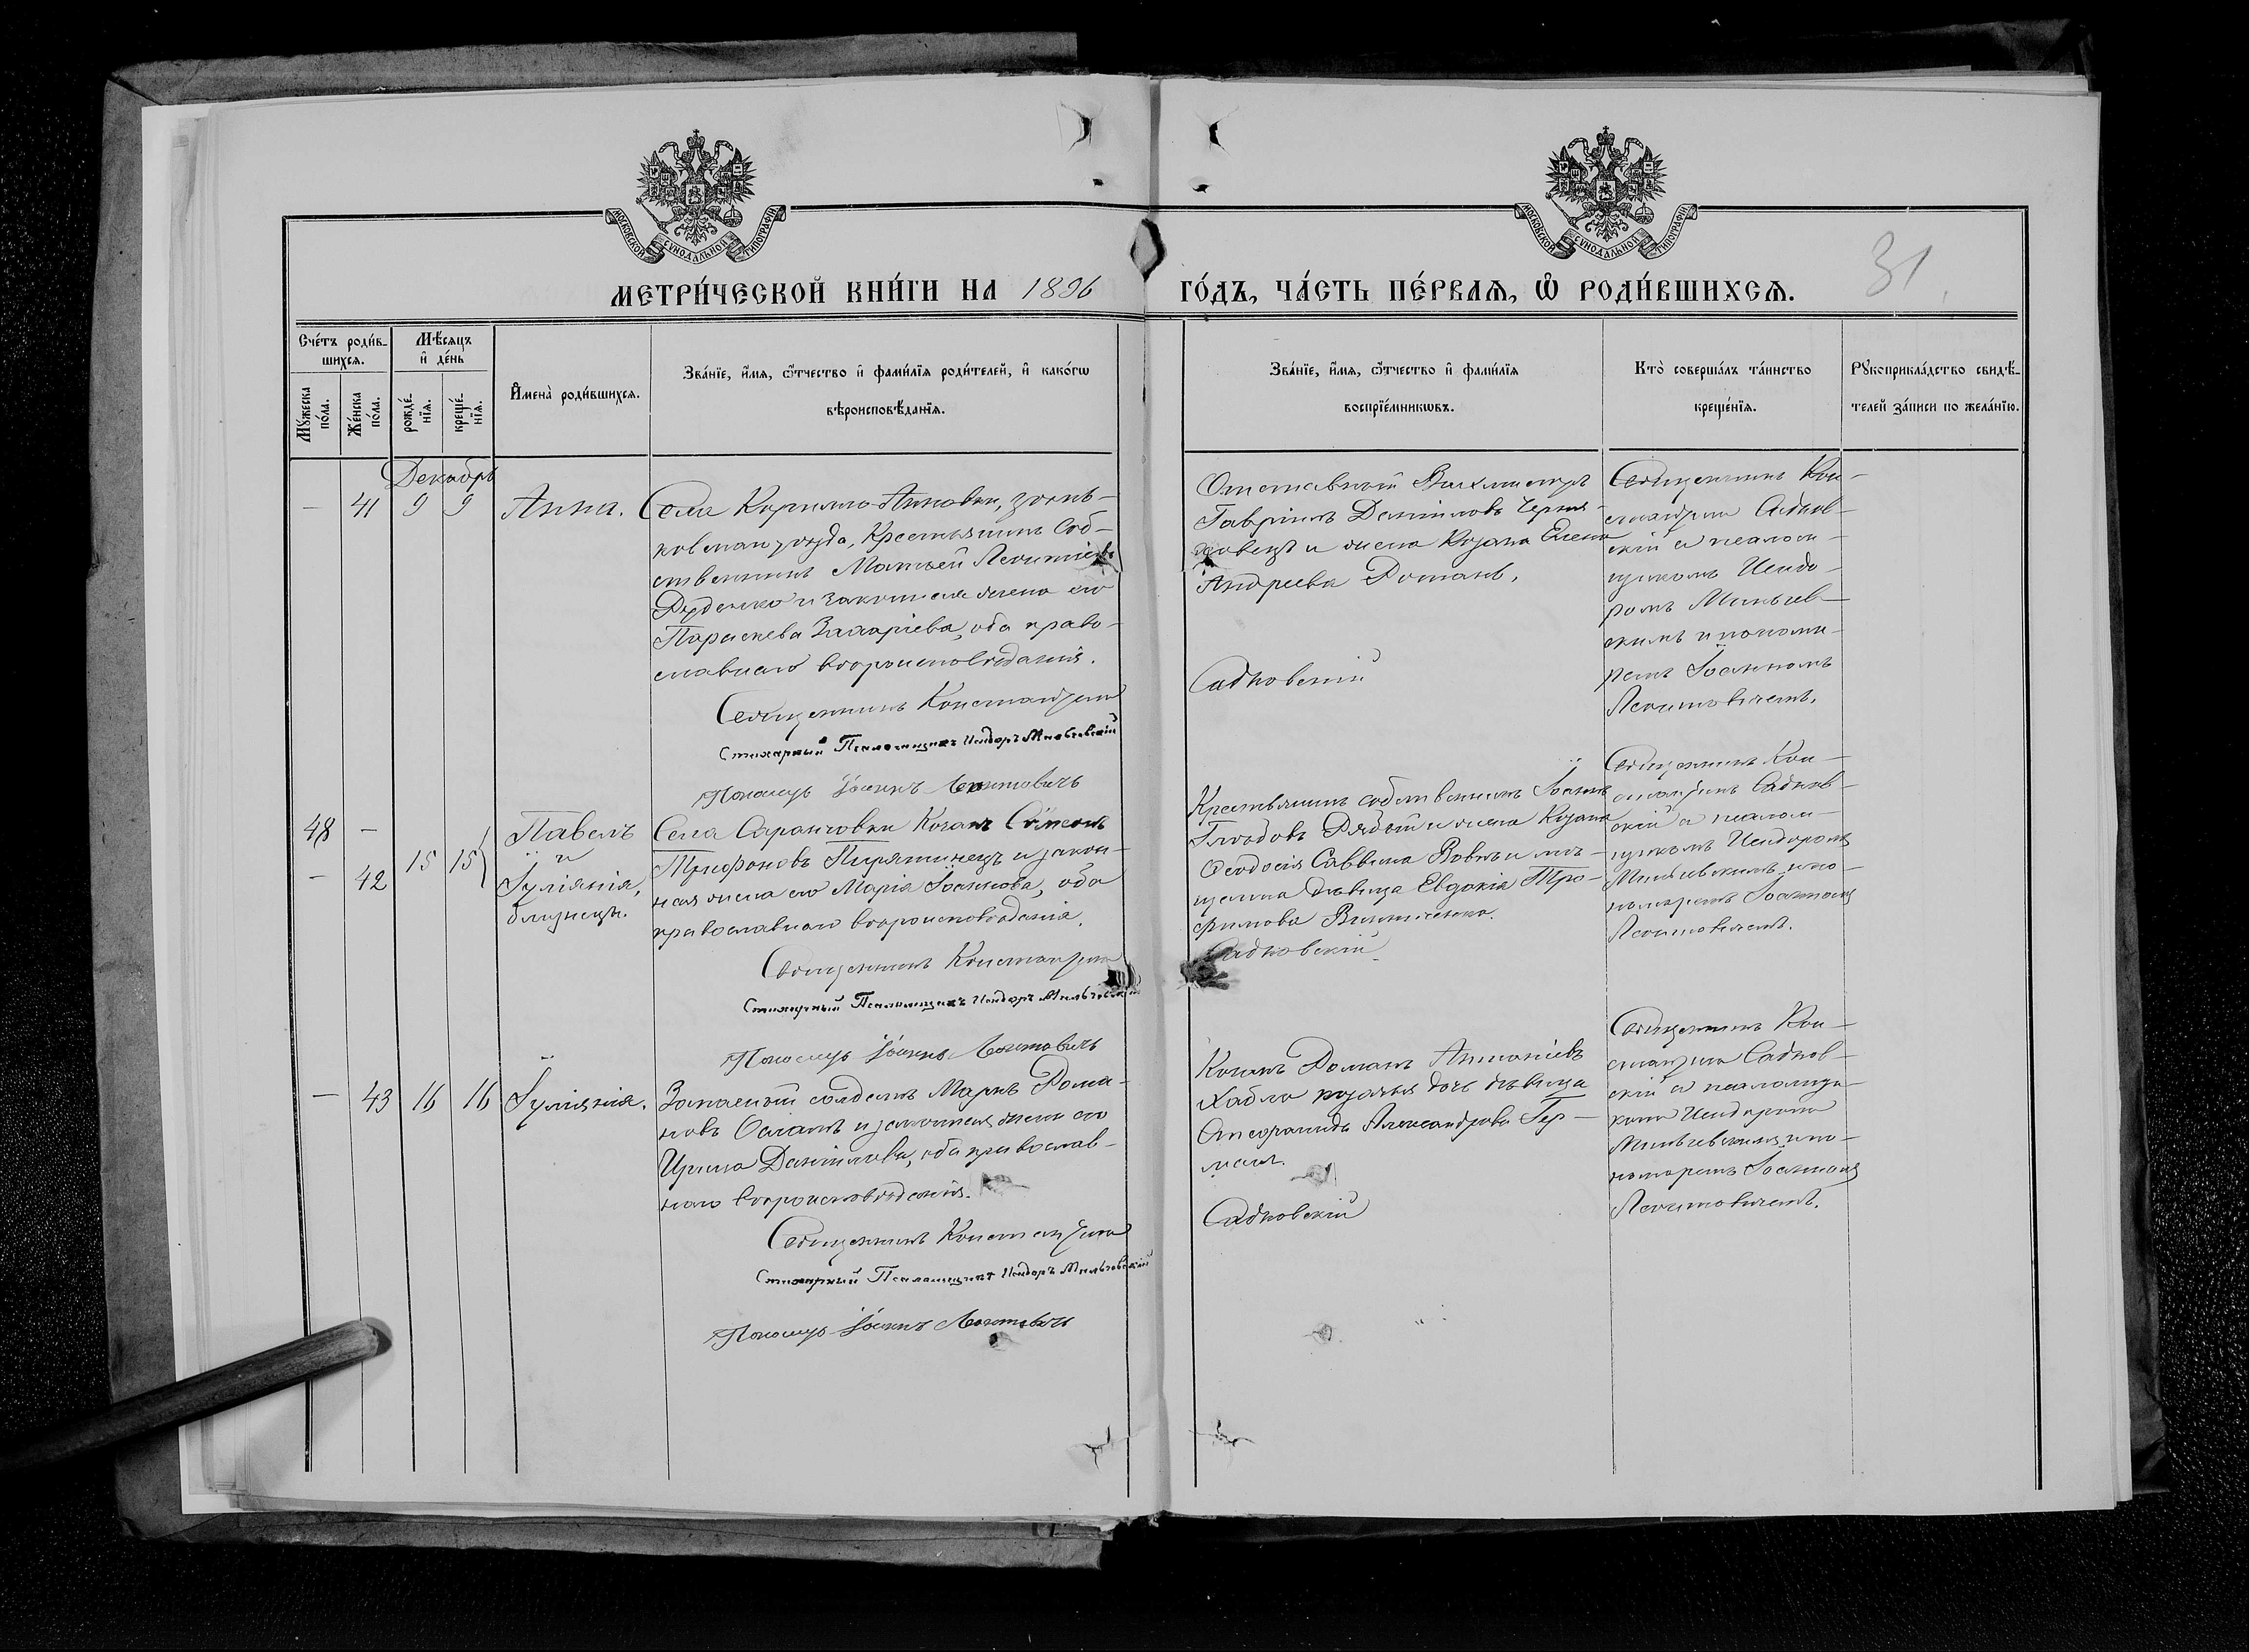 МОСКОВСКОЙ СѴНОДАЛЬНОЙ ТИПОГРАФІИ
МОСКОВСКОЙ СѴНОДАЛЬНОЙ ТИПОГРАФІИ
31
МЕТРИ́ЧЕСКОЙ КНИ́ГИ НА 1896
ГО́ДЪ, ЧА́СТЬ ПЕ́РВАѦ, Ѡ РОДИ́ВШИХСѦ.
Сче́тъ роди́в-
шихсѧ.
Мꙋ́жеска
по́ла.
Же́нска
по́ла.
Мѣ́сѧцъ
и҆ де́нь
рожде́-
нїѧ.
креще́-
нїѧ.
И҆мена̀ роди́вшихсѧ.
Зва́нїе, и҆́мѧ, ѻ҆́тчество и҆ фами́лїѧ роди́телей, и҆ како́гѡ
вѣроисповѣ́данїѧ.
Зва́нїе, и҆́мѧ, ѻ҆́тчество и҆ фами́лїѧ
воспрїе́мникѡвъ.
Кто̀ соверша́лъ та́инство
креще́нїѧ.
Рꙋкоприкла́дство свидѣ́-
телей за́писи по жела́нїю.
Декабрь
— 41 9 9 Анна.
Села Кирилло-Анновки, зѣнь-
ковскаго уѣзда, Крестьянинъ Соб-
ственникъ Матѳей Леонтіевъ
Руденко и законная жена его
Параскева Захаріева, оба право-
славнаго вѣроисповѣданія.
Священникъ Константинъ
Стихарный Псаломщикъ Исидоръ Мильчевскій
Пономарь Іоаннъ Леонтовичъ
Отставной Вахмистръ
Гавріилъ Даніиловъ Черня-
ховецъ и жена Козака Елена
Андреева Романъ.
Садковскій
Священникъ Кон-
стантинъ Садков-
скій съ псалом-
щикомъ Исидо-
ромъ Мильчев-
скимъ и понома-
ремъ Іоанномъ
Леонтовичемъ.
48 —
— 42 15 15
Павелъ
и
Іуліанія,
близнецы.
Села Саранчовки Козакъ Сѵмеонъ
Трифоновъ Пирятинецъ и закон-
ная жена его Марія Іоаннова, оба
православнаго вѣроисповѣданія.
Священникъ Константинъ
Стихарный Псаломщикъ Исидоръ Мильчевскій
Пономарь Іоаннъ Леонтовичъ
Крестьянинъ собственникъ Іоаннъ
Глѣбовъ и жена Козака
Ѳеодосія Саввина Вовкъ и мѣ-
щанка дѣвица Евдокія Тро-
фимова Винниченко.
Садковскій
Священникъ Кон-
стантинъ Садков-
скій съ псалом-
щикомъ Исидоромъ
Мильчевскимъ и по-
номаремъ Іоанномъ
Леонтовичемъ.
— 43 16 16 Іуліанія.
Запасной солдатъ Маркъ Рома-
новъ и законная жена его
Ирина Даніилова, оба православ-
наго вѣроисповѣданія.
Священникъ Константинъ
Стихарный Псаломщикъ Исидоръ Мильчевскій
Пономарь Іоаннъ Леонтовичъ
Козакъ Романъ Антоніевъ
Хабло козачья дочь дѣвица
Александрова Гер-
ман.
Садковскій
Священникъ Кон-
стантинъ Садков-
скій съ псаломщи-
комъ Исидоромъ
Мильчевскимъ и по-
номаремъ Іоанномъ
Леонтовичемъ.